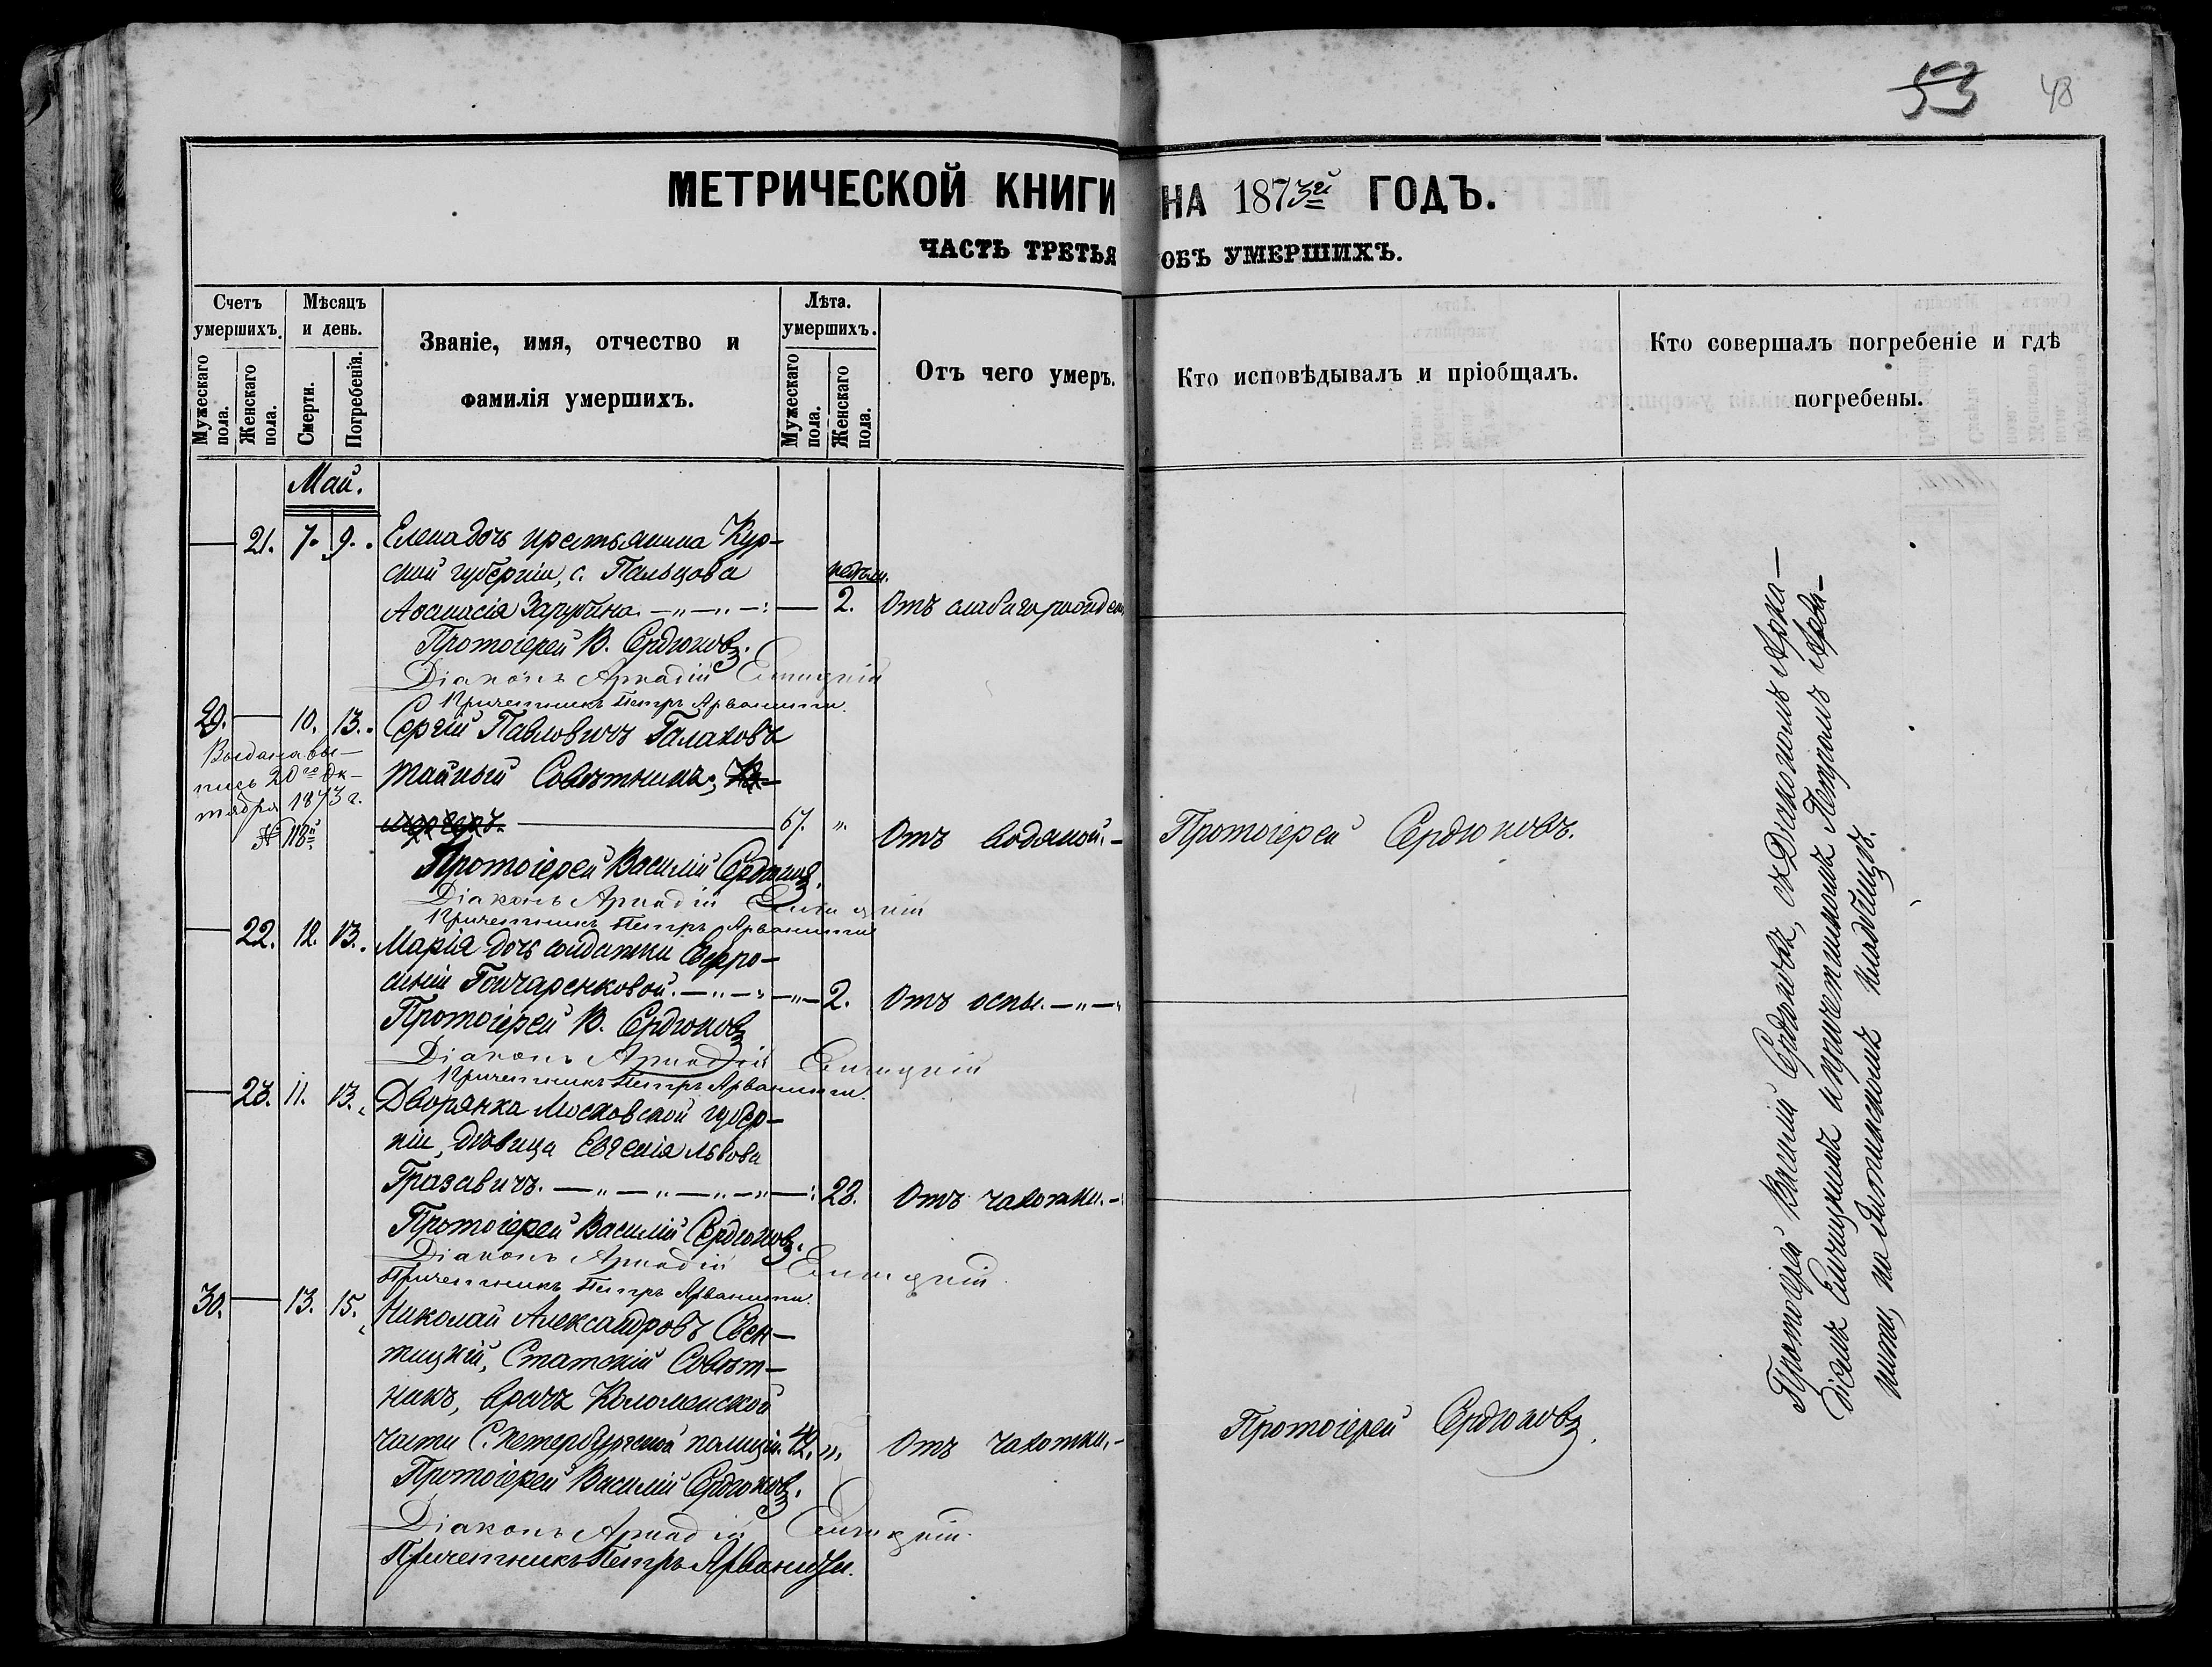 53 48
МЕТРИЧЕСКОЙ КНИГИ НА 1873й ГОДЪ.
ЧАСТЬ ТРЕТЬЯ ОБЪ УМЕРШИХЪ.
Счетъ умершихъ.
Мужескаго пола.
Женскаго пола.
Мѣсяцъ и день.
Смерти.
Погребенія.
Званіе, имя, отчество и
фамилія умершихъ.
Лѣта. умершихъ.
Мужескаго пола.
Женскаго пола.
Отъ чего умеръ.
Кто исповѣдывалъ и пріобщалъ.
Кто совершалъ погребеніе и гдѣ
погребены.
Май.
21. 7. 9. Елена дочь крестьянина Кур-
ской губерніи, с. Пальцова
недѣли.
Аѳанасія Зарубина. 2. Отъ слабаго
Протоіерей В. Сердюковъ.
Діаконъ Аркадій
Причетникъ Петръ Арванити.
29. 10. 13. Сергій Павловичъ Галаховъ
Выдана вы-
пись 20го Ок-
тября 1873 г.
№ 118й
тайный Совѣтникъ;
67. " Отъ водяной. Протоіерей Сердюковъ.
Протоіерей Василій Сердюковъ.
Діаконъ Аркадій
Причетникъ Петръ Арванити
22. 12. 13. Марія дочь солдатки Евфро-
синіи Гончаренковой. 2. Отъ оспы.
Протоіерей В. Сердюковъ
Діаконъ Аркадій
Причетникъ Петръ Арванити.
23. 11. 13. Дворянка Московской губер-
ніи, дѣвица Евгенія Львова
Гразавичъ. 28. Отъ чахотки.
Протоіерей Василій Сердюковъ.
Діаконъ Аркадій
Причетникъ Петръ Арванити.
30. 13. 15. Николай Александровъ Свен-
тицкій, Статскій Совѣт-
никъ, врачъ Коломенской
части С. Петербургской полиціи. 42. " Отъ чахотки. Протоіерей Сердюковъ.
Протоіерей Василій Сердюковъ.
Діаконъ Аркадій
Причетникъ Петръ Арванити.
Протоіерей Василій Сердюковъ, съ Діакономъ Арка-
діемъ и причетникомъ Петромъ Арва-
нити, на кладбищѣ.